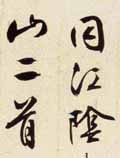 同江陰
山二首